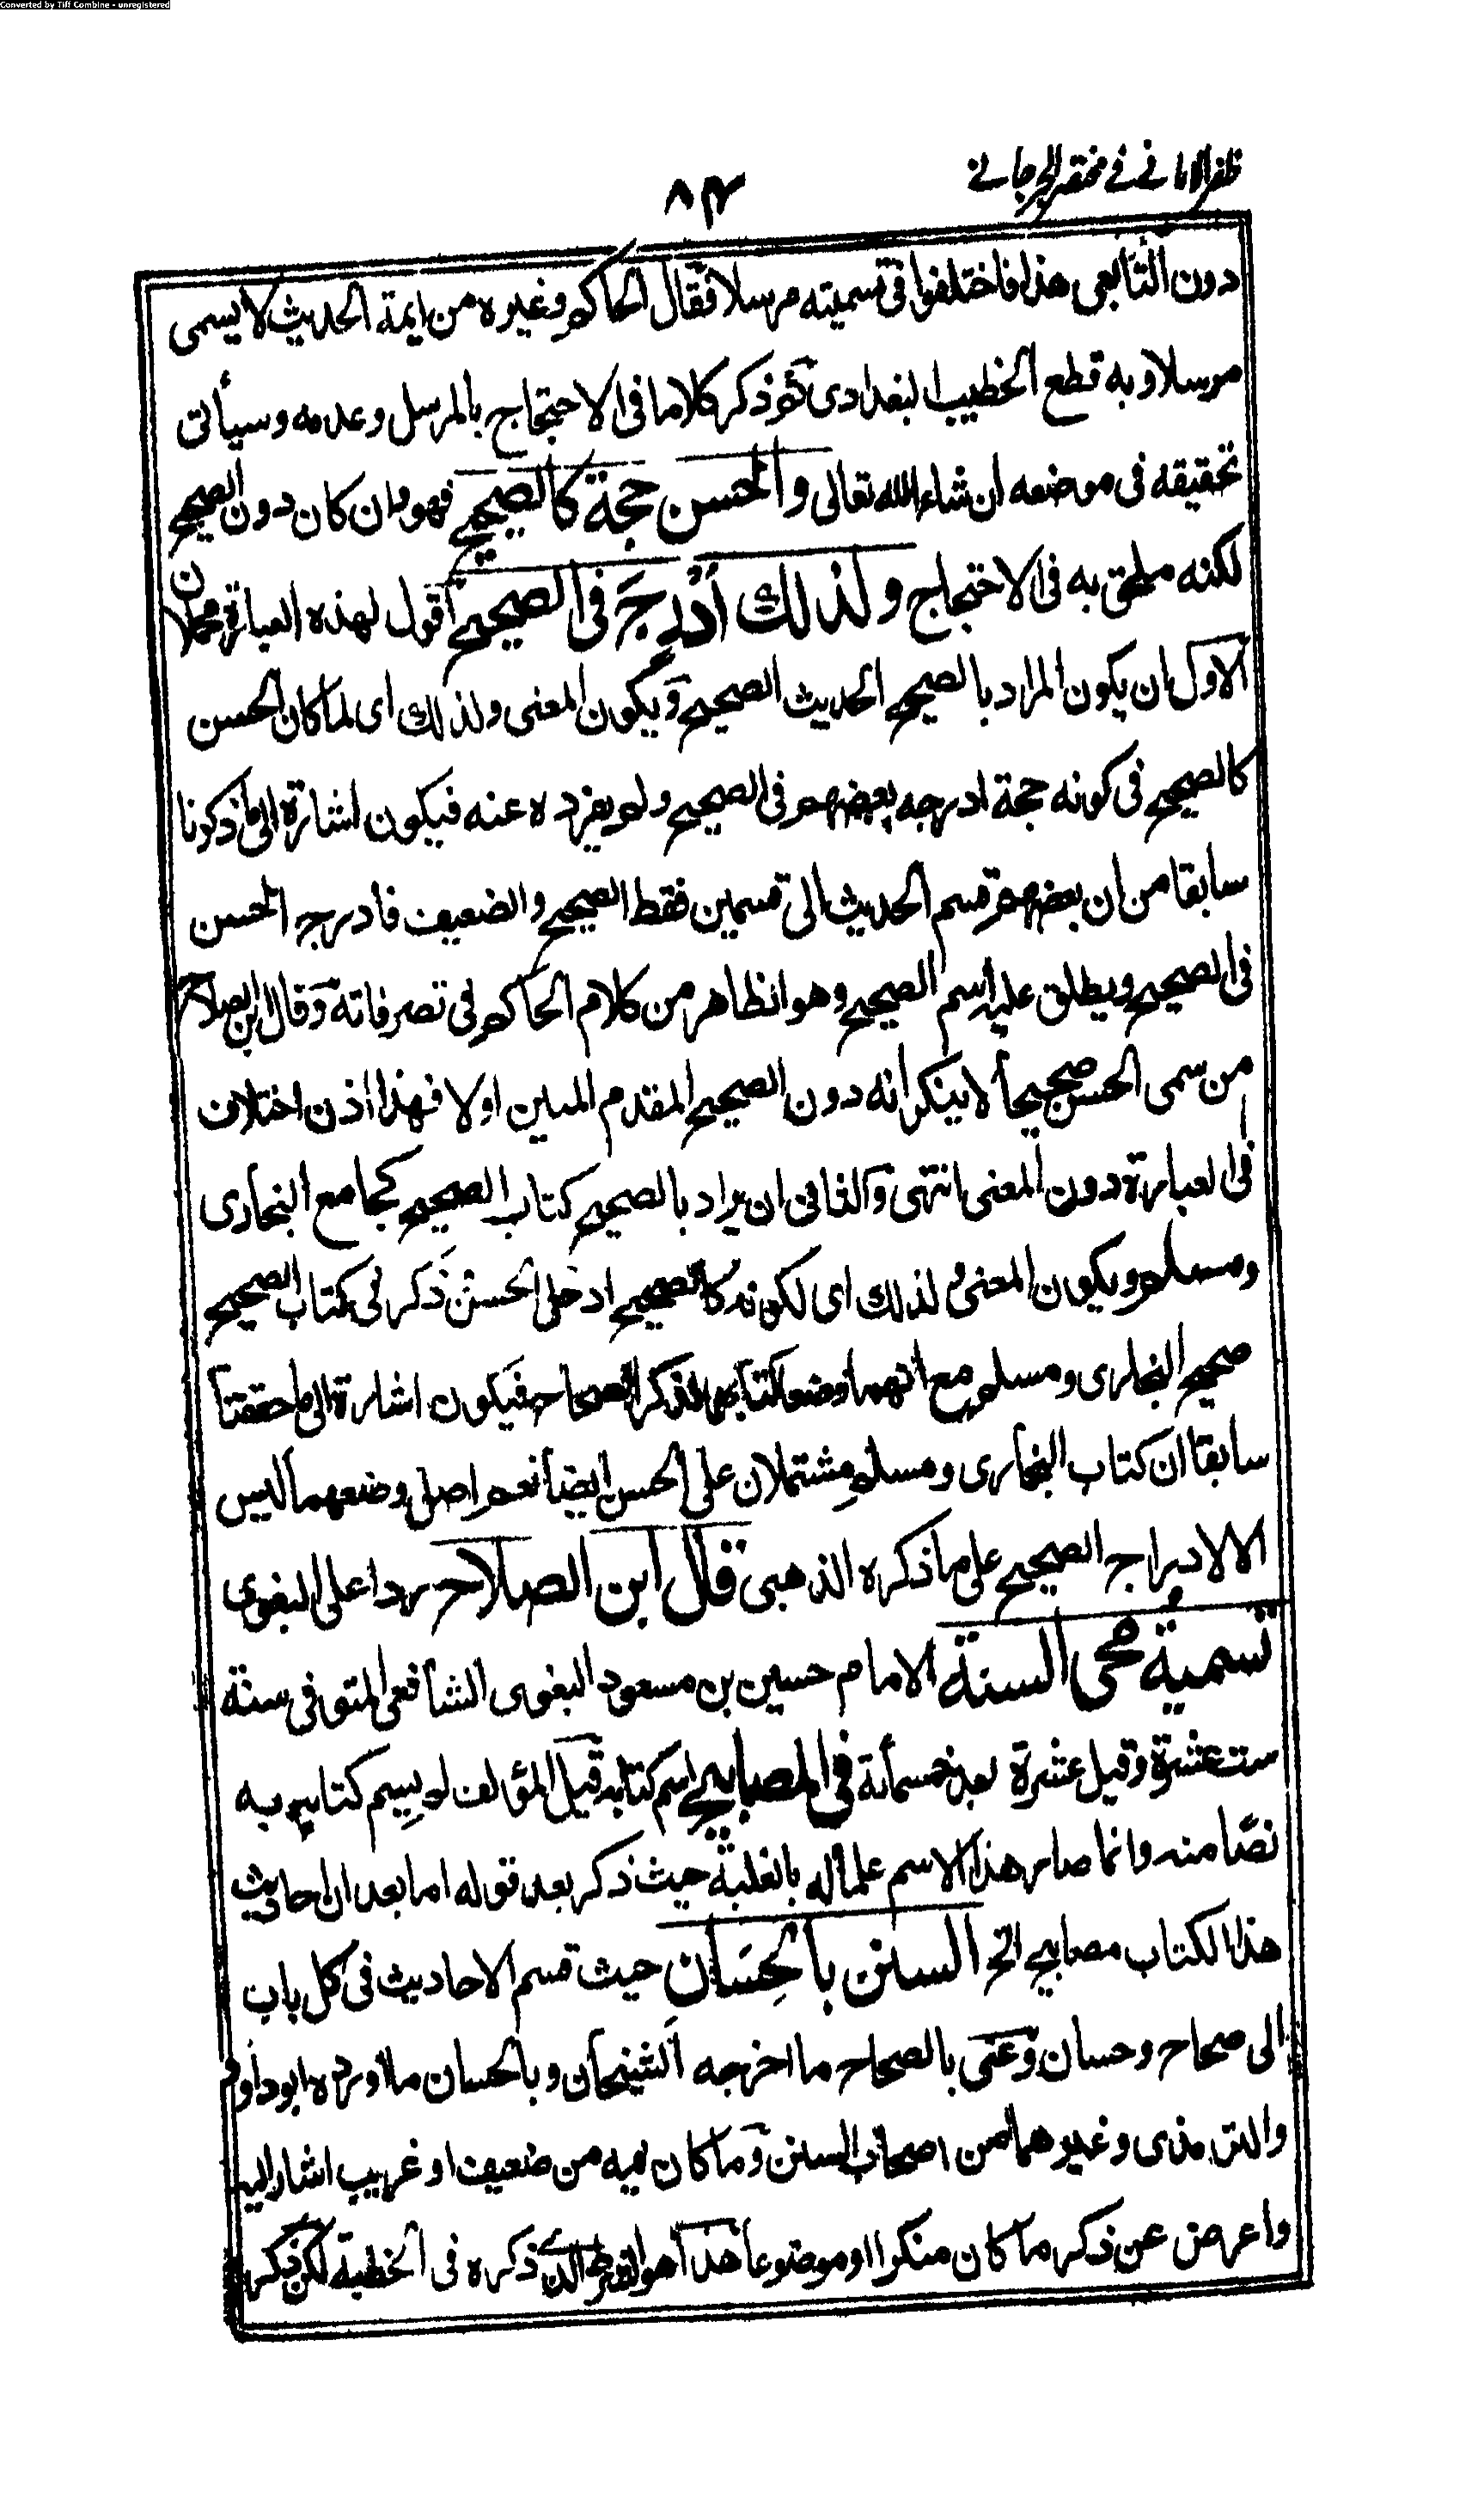 Converted by Tiff Combine - unregistered
ظفر الامانے فے مختصر الجرجانے
٨٤
دون التابعى هذا فاختلفوا فى تسميته مرسلا فقال الحاكم وغيره من ايمة الحديث لا يسمى
مرسلا وبه قطع الخطيب البغدادى ثم ذكر كلاما فى الاحتجاج بالمرسل وعدمه وسيأتى
تحقيقه فى موضعه ان شاء الله تعالى والحسن حجة كالصحيح فهو وان كان دون الصحيح
لكنه ملحق به فى الاحتجاج ولذلك اُدْرِجَ فى الصحيح اقول لهذه العبارة محملان
الاول ان يكون المراد بالصحيح الحديث الصحيح ويكون المعنى ولذلك اى لما كان الحسن
كالصحيح فى كونه حجة ادرجه بعضهم فى الصحيح ولم يفرده عنه فيكون اشارة الى ما ذكرنا
سابقا من ان بعضهم قسم الحديث الى قسمين فقط الصحيح والضعيف فادرج الحسن
فى الصحيح ويطلق عليه اسم الصحيح وهو الظاهر من كلام الحاكم فى تصرفاته وقال ابن الصلاح
من سمى الحسن صحيحا لا ينكر انه دون الصحيح المقدم المبين اولا فهذا اذن اختلاف
فى العبارة دون المعنى انتهى والثانى ان يراد بالصحيح كتاب الصحيح كجامع البخارى
ومسلم ويكون المعنى ولذلك اى لكونه كالصحيح ادخل الحسن وذكر فى كتاب الصحيح
صحيح البخارى ومسلم مع انهما وضعا كتابهما لذكر الصحاح فيكون اشارة الى ما حققنا
سابقا ان كتاب البخارى ومسلم مشتملان على الحسن ايضا نعم اصل وضعهما ليس
الا لادراج الصحيح على ما ذكره الذهبى قال ابن الصلاح ردا على البغوى
تسمية محى السنة الامام حسين بن مسعود البغوى الشافعى المتوفى سنة
ست عشرة وقيل عشرة بعد خمسمائة فى المصابيح اسم كتابه قيل المؤلف لم يسم كتابه به
نصّا منه وانما صار هذا الاسم علما له بالغلبة حيث ذكر بعد قوله اما بعد ان احاديث
هذا الكتاب مصابيح الخ السنن بالحِسَان حيث قسم الاحاديث فى كل باب
الى صحاح وحسان وعنى بالصحاح ما اخرجه الشيخان وبالحسان ما اورده ابو داود
والترمذى وغيرهما من اصحاب السنن وما كان فيه من ضعيف او غريب اشار اليه
واعرض عن ذكر ما كان منكرا او موضوعا هذا هو الشرط الذى ذكره فى الخطبة لكن ذكر